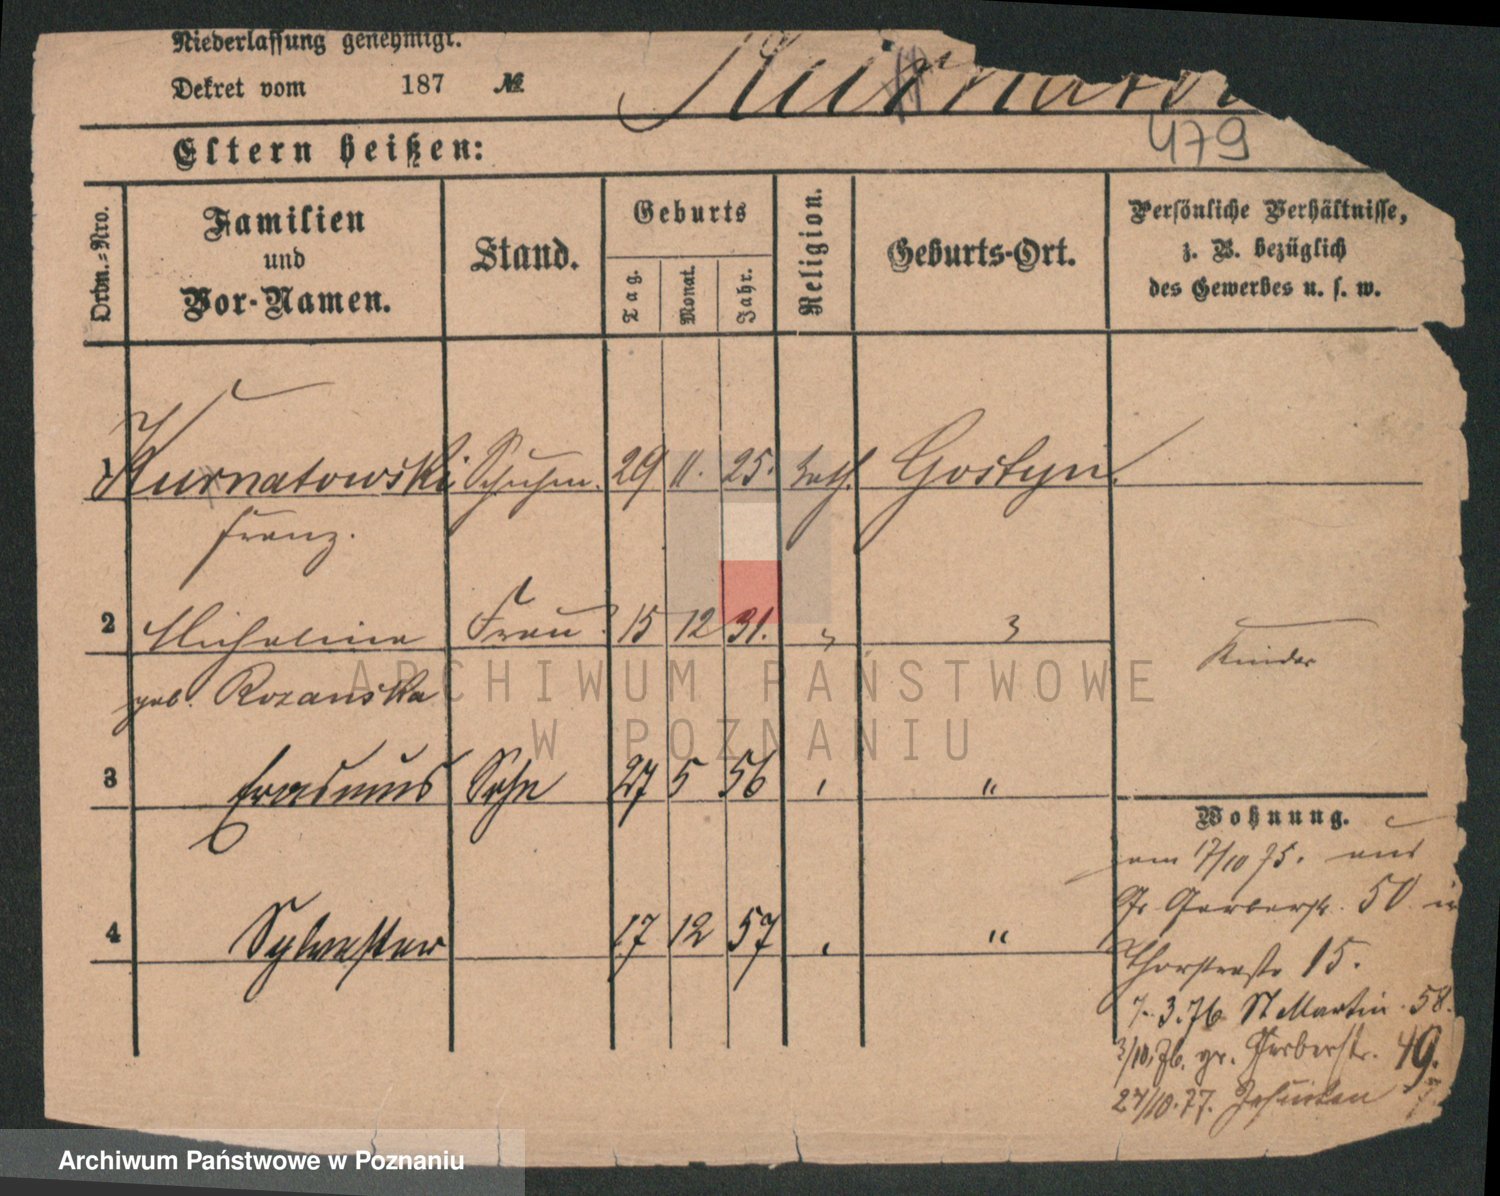 Niederlassung genehmigt.
Dekret vom 187 №
Kurnatow
479
Eltern heißen:
Ordn.-Nro.
Familien
und
Vor-Namen.
Stand.
Geburts
Tag.
Monat.
Jahr.
Religion.
Geburts-Ort.
Persönliche Verhältnisse,
z. B. bezüglich
des Gewerbes u. s. w.
1 Kurnatowski Schuhm. 29 11. 25. kath. Gostyn.
Franz.
2 Michalina Frau 15 12 31. " "
geb. Rozanska
Kinder
3 Erasmus Sohn 27 5 56 " "
4 Sylvester 17 12 57 " "
Wohnung.
vom 17/10 75. aus
Gr Gerberstr. 50 in
Thorstraße 15.
7. 3. 76 St Martin 58.
3/10. 76. gr. Gerberstr. 49.
24/10. 77. Jesuiten 7
ARCHIWUM PAŃSTWOWE
W POZNANIU
Archiwum Państwowe w Poznaniu